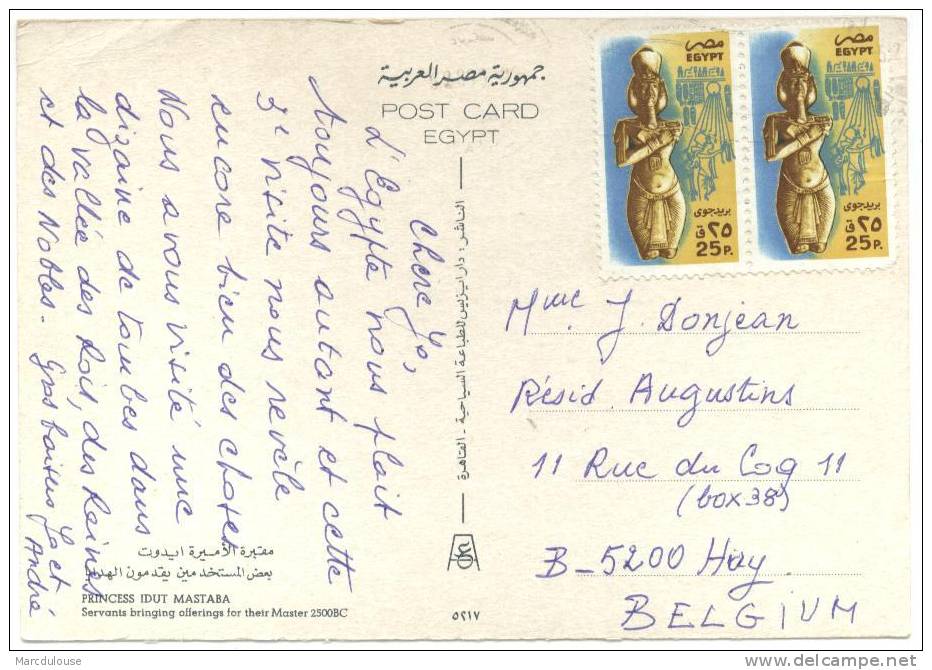 جمهورية مصر العربية
POST CARD
EGYPT
Chère Jo,
L'Egypte nous plait
toujours autant et cette
3e visite nous revèle
encore bien des choses
Nous avons visité une
dizaine de tombes dans
la vallée des Rois, des Reines
et des Nobles. Gros baisers Ja et
André
مقبرة الأميرة ايدوت
بعض المستخدمين يقدمون الهدايا
PRINCESS IDUT MASTABA
Servants bringing offerings for their Master 2500BC
الناشر : دار ايزيس للطباعة السياحية - القاهرة
٥٢١٧
مصر
EGYPT
بريد جوى
٢٥ ق
25 P.
مصر
EGYPT
بريد جوى
٢٥ ق
25 P.
Mme. J. Donjean
Résid. Augustins
11 Rue du Coq 11
(box 38)
B-5200 Huy
BELGIUM
© Marcdulouse
delcampe.net